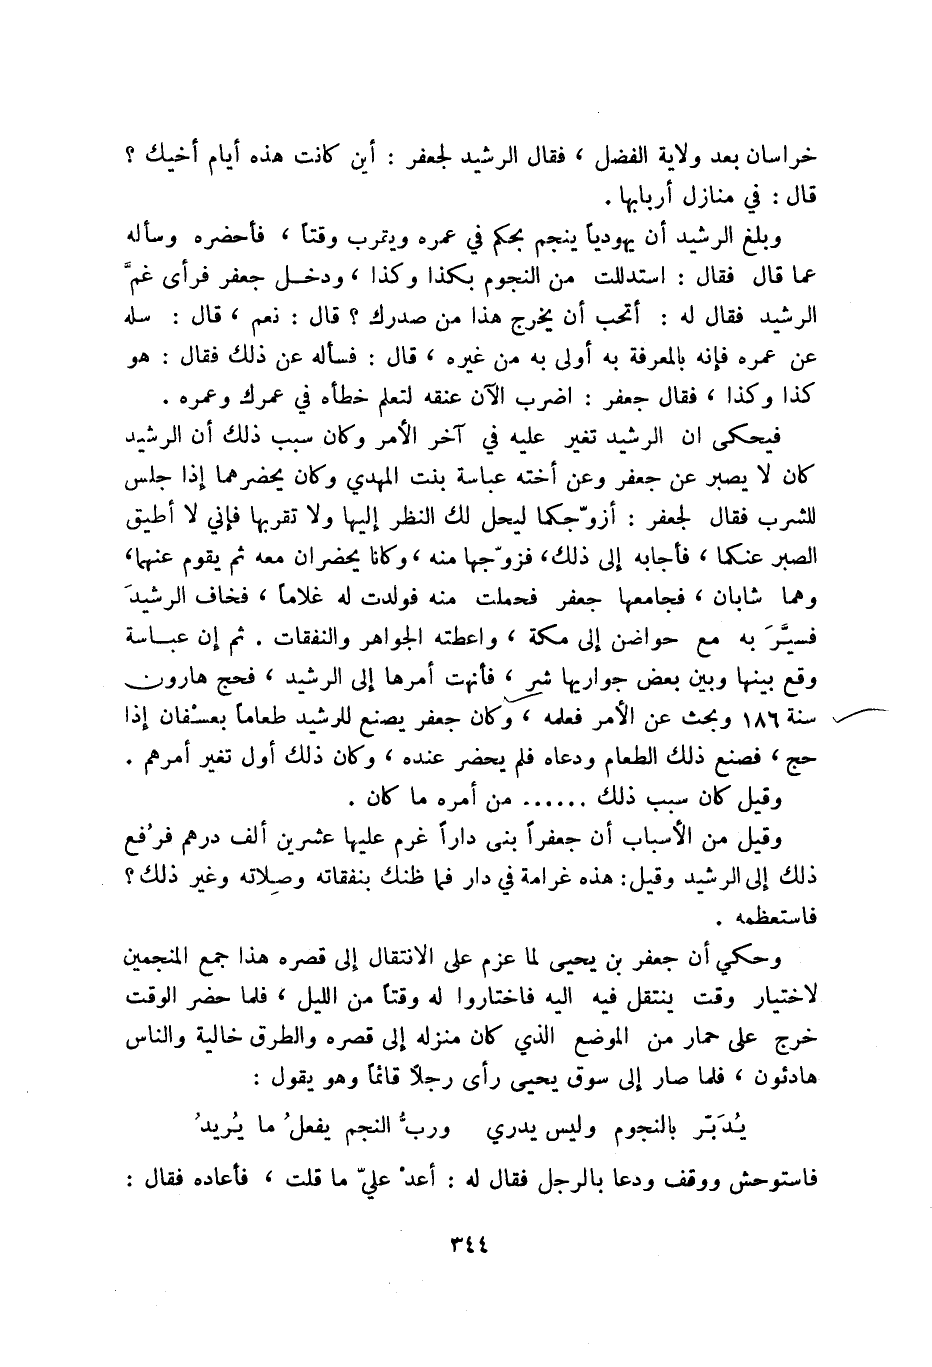 خراسان بعد ولاية الفضل ، فقال الرشيد لجعفر : أين كانت هذه أيام أخيك ؟
قال : في منازل أربابها .
وبلغ الرشيد أن يهودياً ينجم بحكم في عمره ويقرب وقتاً ، فأحضره وسأله
عما قال فقال : استدللت من النجوم بكذا وكذا ، ودخل جعفر فرأى غمَّ
الرشيد فقال له : أتحب أن يخرج هذا من صدرك ؟ قال : نعم ، قال : سله
عن عمره فإنه بالمعرفة به أولى به من غيره ، قال : فسأله عن ذلك فقال : هو
كذا وكذا ، فقال جعفر : اضرب الآن عنقه لتعلم خطأه في عمرك وعمره .
فيحكى ان الرشيد تغير عليه في آخر الأمر وكان سبب ذلك أن الرشيد
كان لا يصبر عن جعفر وعن أخته عباسة بنت المهدي وكان يحضرهما إذا جلس
للشرب فقال لجعفر : أزوّجكما ليحل لك النظر إليها ولا تقربها فإني لا أطيق
الصبر عنكما ، فأجابه إلى ذلك، فزوّجها منه ، وكانا يحضران معه ثم يقوم عنهما،
وهما شابان ، فجامعها جعفر فحملت منه فولدت له غلاماً ، فخاف الرشيدَ
فسيَّرَ به مع حواضن إلى مكة ، واعطته الجواهر والنفقات . ثم إن عباسة
وقع بينها وبين بعض جواريها شر ، فأنهت أمرها إلى الرشيد ، فحج هارون
سنة ١٨٦ وبحث عن الأمر فعلمه ، وكان جعفر يصنع للرشيد طعاماً بعسْفان إذا
حج ، فصنع ذلك الطعام ودعاه فلم يحضر عنده ، وكان ذلك أول تغير أمرهم .
وقيل كان سبب ذلك ...... من أمره ما كان .
وقيل من الأسباب أن جعفراً بنى داراً غرم عليها عشرين ألف درهم فرُفع
ذلك إلى الرشيد وقيل : هذه غرامة في دار فما ظنك بنفقاته وصلاته وغير ذلك ؟
فاستعظمه .
وحكي أن جعفر بن يحيى لما عزم على الانتقال إلى قصره هذا جمع المنجمين
لاختيار وقت ينتقل فيه اليه فاختاروا له وقتاً من الليل ، فلما حضر الوقت
خرج على حمار من الموضع الذي كان منزله إلى قصره والطرق خالية والناس
هادئون ، فلما صار إلى سوق يحيى رأى رجلاً قائماً وهو يقول :
يُدَبّر بالنجوم وليس يدري وربُّ النجم يفعلُ ما يُريدُ
فاستوحش ووقف ودعا بالرجل فقال له : أعدْ عليّ ما قلت ، فأعاده فقال :
٣٤٤